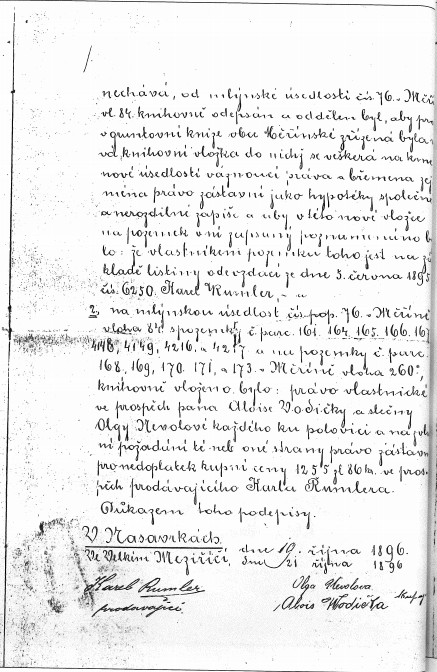 nechává, od mlýnské usedlosti čís. 76. v Měři
vl. 84. knihovně odepsán a oddělen byl, aby pro
v gruntovní knize obce Měřínské zřízena byla
vá knihovní vložka do nichž se veškerá na kme
nové usedlosti váznoucí práva a břemena zej
ména právo zástavní jako hypotéky společně
a nerozdílně zapíše a aby v této nové vložce
na pozemek v ní zapsaný poznamenáno b
to: že vlastníkem pozemku toho jest na zá
kladě listiny odevzdací ze dne 3. června 1895
čís. 6250. Karel Rumler, – a
2, na mlýnskou usedlost čís. pop. 76. v Měříně
vloha 84. s pozemky č. parc. 161. 164. 165. 166. 167
4148, 4149, 4216. a 4217 a na pozemky č. parc.
168., 169, 170. 171. a 173. v Měříně vloha 260.,
knihovně vloženo bylo: právo vlastnické
ve prospěch pana Aloise Vodičky a slečny
Olgy Nevolové každého ku polovici a na zvl
ní požádání té neb oné strany právo zástavn
pro nedoplatek kupní ceny 1255 zl. 86 kr. ve pros
pěch prodávajícího Karla Rumlera.
Důkazem toho podepisy.
V Nasavrkách, dne 19. října 1896.
Ve Velkém Meziříčí, dne 21 října 1896
Karel Rumler
prodávající
Olga Nevolova
Alois Wodička